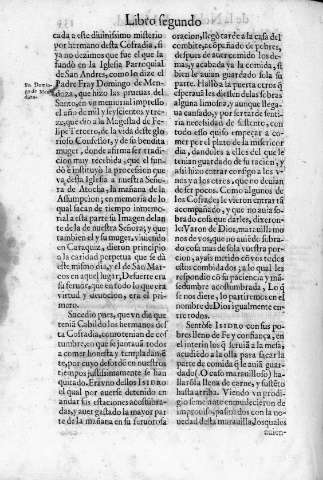 Libro segundo
cada a esse diuinissimo misterio
por hermano desta Cofradia, si
ya no dezimos que fue el que la
fundò en la Iglesia Parroquial
de San Andres, como lo dize el
Padre Fray Domingo de Men-
doza, que hizo las prueuas del
Santo, en vn memorial impresso
el año de mil y seyscientos y tre-
ze, que dio a la Magestad de Fe-
lipe Tercero, de la vida deste glo-
rioso Confessor, y de su bendita
muger, donde afirma ser tradi-
cion muy recebida, que el fun-
dò è instituyò la procession que
va desta Iglesia a nuestra Seño-
ra de Atocha, la mañana de la
Assumpcion; en memoria de lo
qual sacan de tiempo inmemo-
rial a esta parte su Imagen delan-
te de la de nuestra Señora, y que
tambien el y su muger, viuiendo
en Caraquiz, dieron principio
a la caridad perpetua que se dà
este mismo dia, y el de San Mar-
cos en aquel lugar, Desuerte era
su feruor, que en todo lo que era
virtud y deuocion, era el pri-
mero.
Sucediò pues, que vn dia que
tenia Cabildo los hermanos des
ta Cofradia, como tenian de cos
tumbre, en que se juntauã todos
a comer honesta y templadamẽ
te, por cuyo desorde en nuestros
tiempos justissimamente se han
quitado. Era vno dellos ISIDRO
el qual por auerse detenido en
andar sus estaciones acostumbra-
das, y auer gastado la mayor parte
de la mañana en su feruorosa
En Domin-
go de Men-
doza.
oracion, llegò tarde a la casa del
combite, acõpañado de pobres,
despues de auer comido los de-
mas, y acabada ya la comida, si
bien le auian guardado sola su
parte. Hallò a la puerta otros q̃
esperauã les diessen de las sobras
alguna limosna, y aunque llega-
ua cansado, y por ser tarde sen-
tiria necessidad de sustento, con
todo esso quiso empeçar a co-
mer por el plato de la misericor
dia, dandoles a ellos del que le
tenian guardado de su racion, y
assi hizo entrar consigo a los v-
nos y a los otros, que no deuian
de ser pocos. Como algunos de
los Cofrades le vieron entrar tã
acompañado, y que no auia so-
brado cosa que darles, dixeron-
le: Varon de Dios, marauillamo
nos de vos, que no auiẽdo sobra-
do cosa mas de sola vuestra por-
cion, ayais metido cõ vos todos
estos combidados, a lo qual les
respondio cõ su paciencia y mã-
sedumbre acostumbrada, Lo q̃
se nos diere, lo partiremos en el
nombre de Dios igualmente en-
tre todos.
Sentòse ISIDRO con sus po-
bres lleno de Fe y confiança, en
el interin los q̃ seruiã a la mesa,
acudieõ a la olla para sacar la
parte de comida q̃ le auiã guar-
dado (O caso marauilloso) ha-
llarõla llena de carne, y sustẽto
hasta arriba. Viendo vn prodi-
gio semejante enmudecieron de
improuiso, pasmados con la no-
uedad de la marauilla, los quales